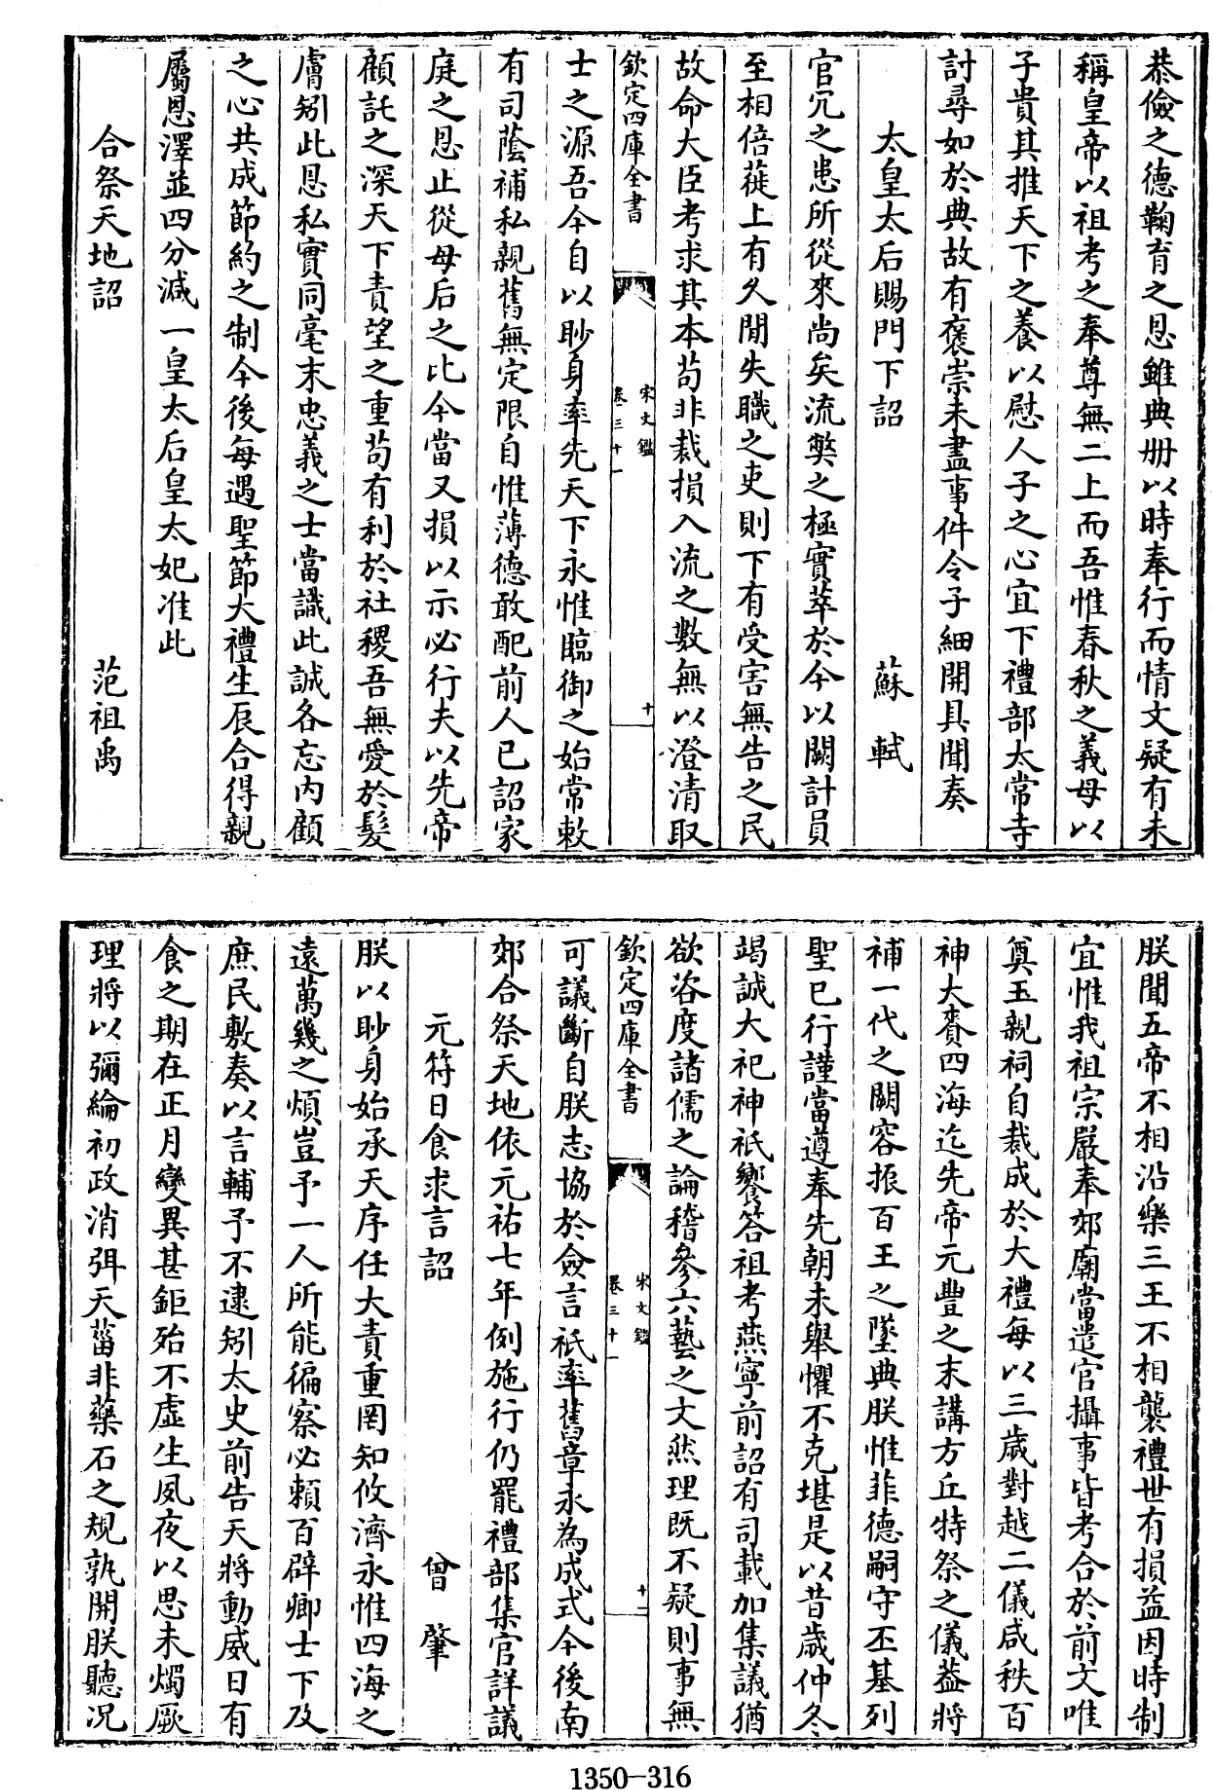 恭儉之德鞠育之恩雖典册以時奉行而情文疑有未
稱皇帝以祖考之奉尊無二上而吾惟春秋之義母以
子貴其推天下之養以慰人子之心宜下禮部太常寺
討尋如於典故有褒崇未盡事件令子細開具聞奏
太皇太后賜門下詔 蘇軾
官冗之患所從來尚矣流弊之極實萃於今以闕計員
至相倍蓰上有久閒失職之吏則下有受害無告之民
故命大臣考求其本苟非裁損入流之數無以澄清取
欽定四庫全書 宋文鑑 卷三十一 十
士之源吾今自以眇身率先天下永惟臨御之始常敕
有司蔭補私親舊無定限自惟薄德敢配前人已詔家
庭之恩止從母后之比今當又損以示必行夫以先帝
顧託之深天下責望之重苟有利於社稷吾無愛於髮
膚矧此恩私實同毫末忠義之士當識此誠各忘内顧
之心共成節約之制今後每遇聖節大禮生辰合得親
屬恩澤並四分減一皇太后皇太妃准此
合祭天地詔 范祖禹
朕聞五帝不相沿樂三王不相襲禮世有損益因時制
宜惟我祖宗嚴奉郊廟嘗遣官攝事皆考合於前文唯
奠玉親祠自裁成於大禮每以三歲對越二儀咸秩百
神大賚四海迄先帝元豐之末講方丘特祭之儀葢將
補一代之闕容振百王之墜典朕惟菲德嗣守丕基列
聖已行謹當遵奉先朝未舉懼不克堪是以昔歲仲冬
竭誠大祀神祇饗答祖考燕寧前詔有司載加集議猶
欲咨度諸儒之論稽參六藝之文然理既不疑則事無
欽定四庫全書 宋文鑑 卷三十一 十一
可議斷自朕志協於僉言祇率舊章永為成式今後南
郊合祭天地依元祐七年例施行仍罷禮部集官詳議
元符日食求言詔 曾肇
朕以眇身始承天序任大責重罔知攸濟永惟四海之
遠萬幾之煩豈予一人所能徧察必賴百辟卿士下及
庶民敷奏以言輔予不逮矧太史前告天將動威日有
食之期在正月變異甚鉅殆不虛生夙夜以思未燭厥
理將以彌綸初政消弭天菑非藥石之規孰開朕聽况
1350-316